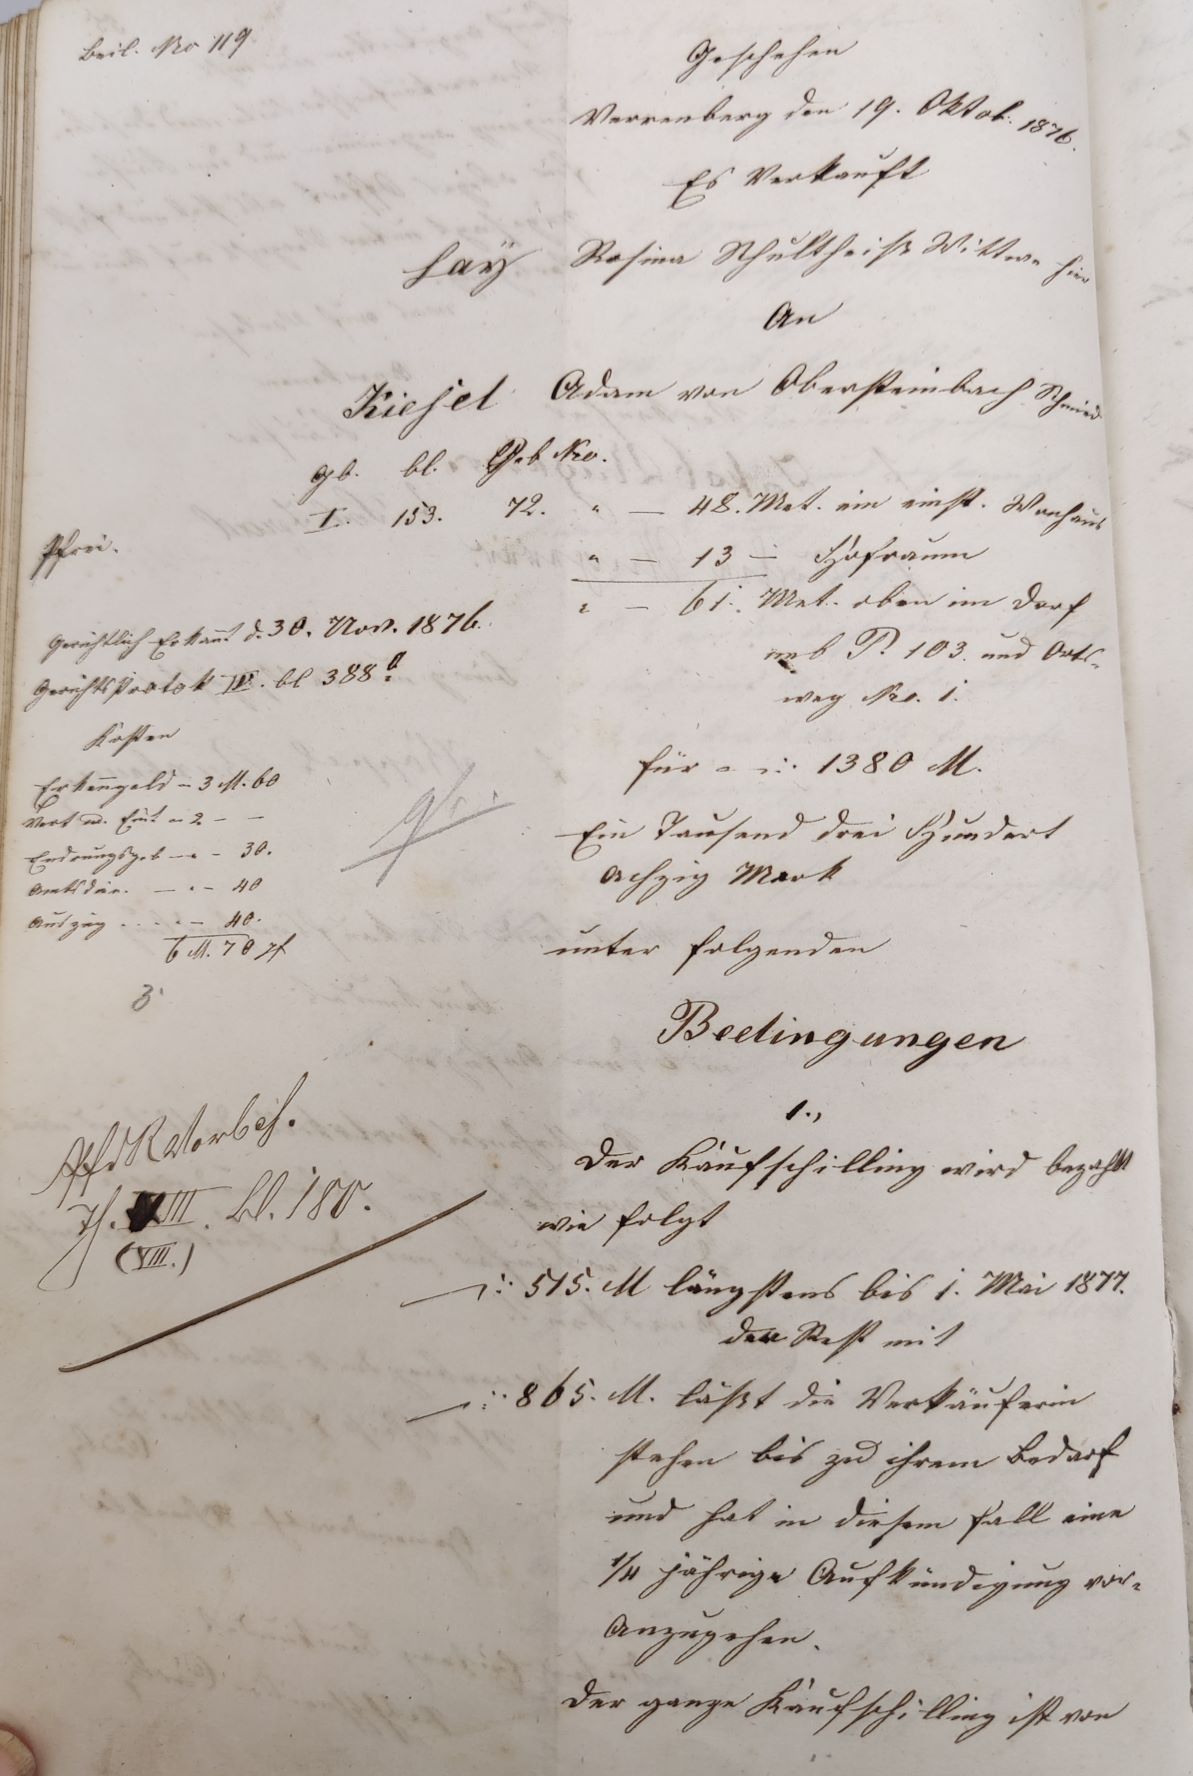 Beil. No 119
Geschehen
Verrenberg den 19. Oktob. 1876.
Es Verkauft
Hay Rosina Schultheiß Wittwe hier
An
Kiesel Adam von Obersteinbach Schmied
gb. bl. Geb No.
I. 153. 72. " — 48. Met. ein einst. Wonhaus
Pfrei.
" — 13 — Hofraum
" — 61. Met. oben im Dorf
neb P. 103. und Orts-
weg No. 1.
Gerichtlich Erkannt d. 30. Nov. 1876.
Gerichts Protok IV. bl 388
Kosten
Erkenngeld - 3 M. 60
- 2 - -
- 30.
Amtsdin. — " - 40
Auszug . . . " - 40.
6 M. 70 pf
für - 1380 M.
Ein Tausend drei Hundert
Achzig Mark
unter folgenden
Bedingungen
1.,
Der Kaufschilling wird bezahlt
wie folgt
515. M längstens bis 1. Mai 1877.
der Rest mit
865. M. läßt die Verkäuferin
stehen bis zu ihrem Bedarf
und hat in diesem Fall eine
1/4 jährige Aufkündigung vor-
Anzugehen.
Der ganze Kaufschilling ist von
Th. VIII. bl. 180.
(VIII.)